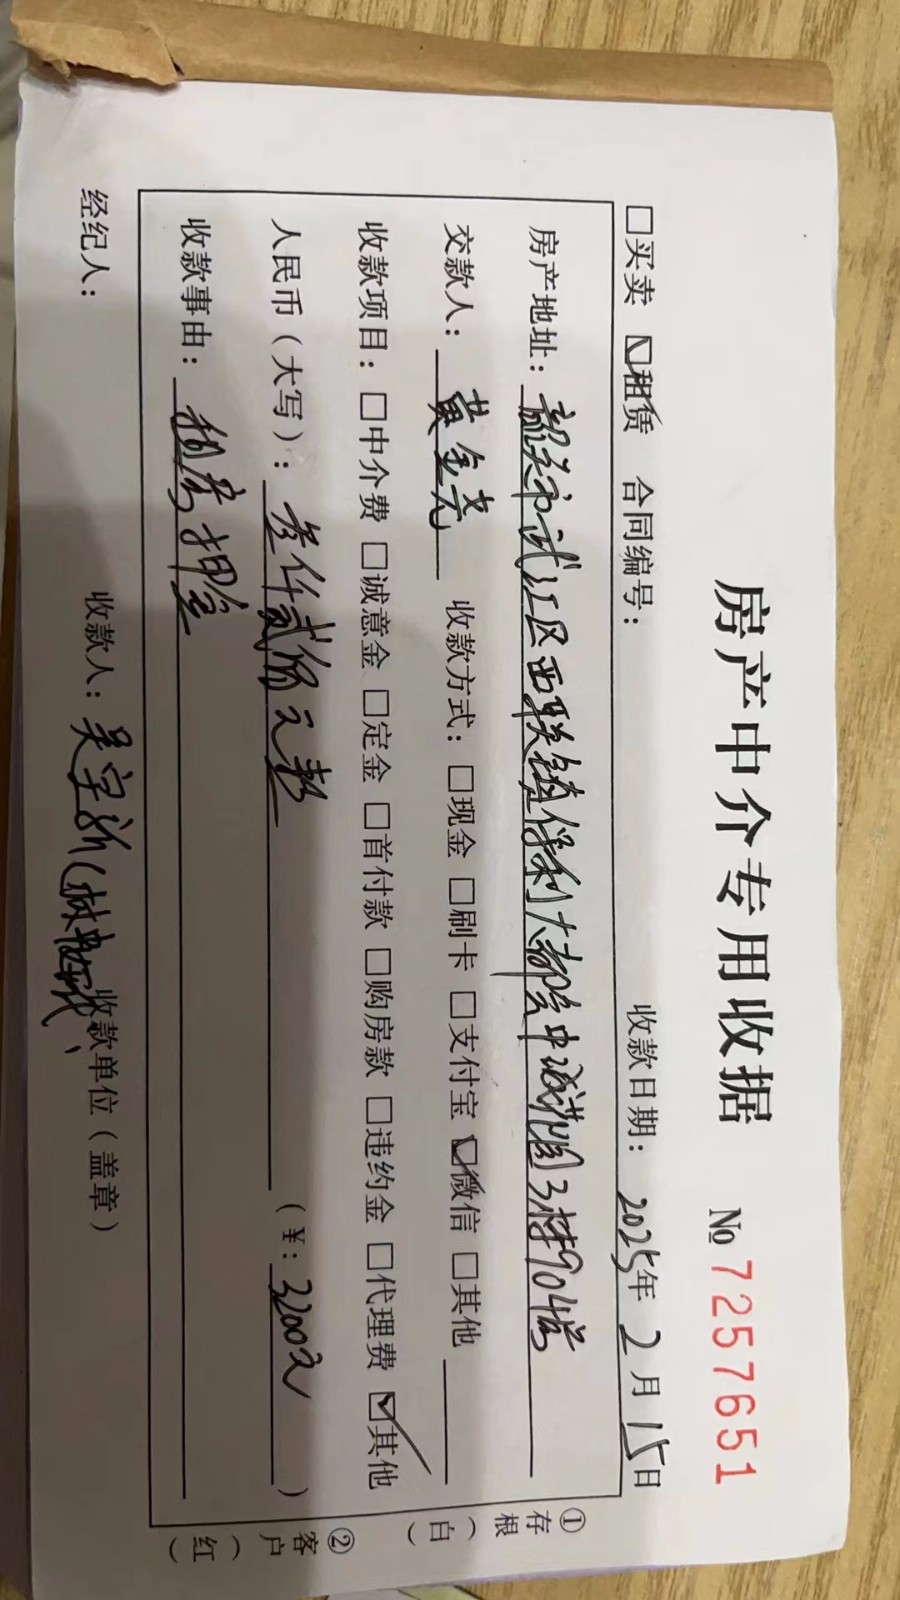 房产中介专用收据 № 7257651
□买卖 ☑租赁 合同编号: 收款日期: 2025年 2 月 15日
房产地址: 韶关市武江区西联镇保利大都会中诚花园3栋904房
交款人: 黄金尧 收款方式: □现金 □刷卡 □支付宝 ☑微信 □其他
收款项目: □中介费 □诚意金 □定金 □首付款 □购房款 □违约金 □代理费 ☑其他
人民币(大写): 叁仟贰佰元整 (¥: 3200元)
收款事由: 租房押金
经纪人: 收款人: 吴宇新( 收款单位(盖章)
①存根(白)
②客户(红)